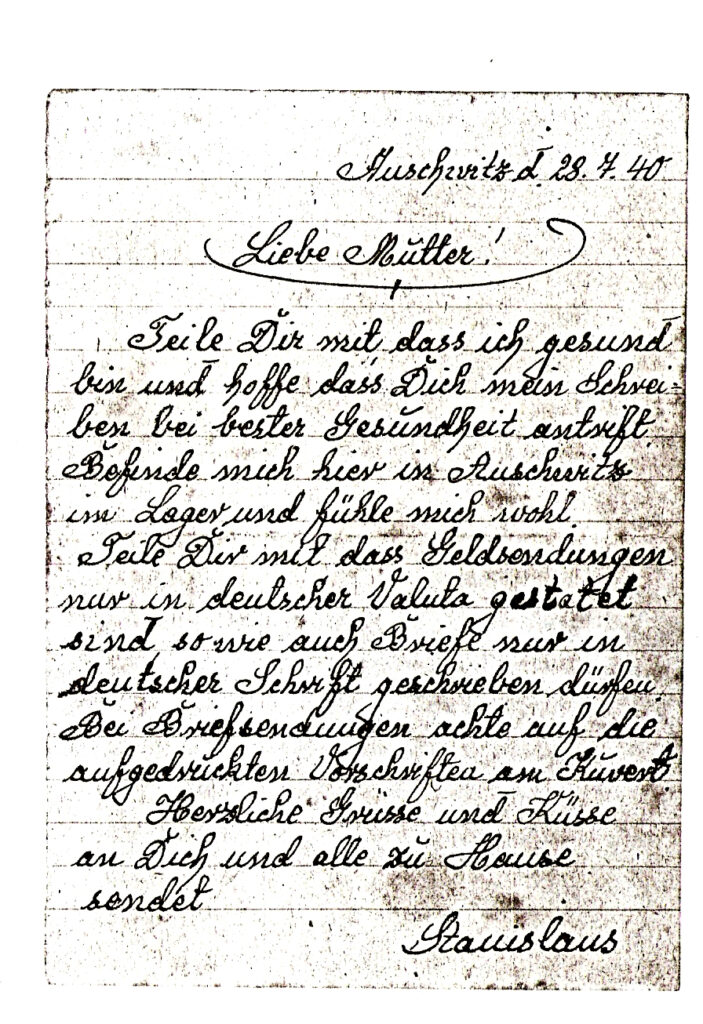 Auschwitz d. 28. 7. 40
Liebe Mutter!
Teile Dir mit dass ich gesund
bin und hoffe dass Dich mein Schrei=
ben bei bester Gesundheit antrift.
Befinde mich hier in Auschwitz
im Lager und fühle mich wohl.
Teile Dir mit dass Geldsendungen
nur in deutscher Valuta gestatet
sind, so wie auch Briefe nur in
deutscher Schrift geschrieben dürfen.
Bei Briefsendungen achte auf die
aufgedruckten Vorschriften am Kuvert.
Herzliche Grüsse und Küsse
an Dich und alle zu Hause
sendet
Stanislaus